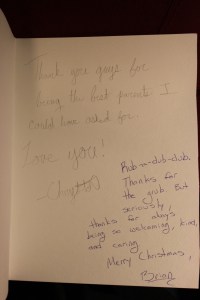 Thank you guys for
being the best parents I
could have asked for.
Love you!
Rub-a-dub-dub.
Thanks for
the grub. But
seriously,
thanks for always
being so welcoming, kind,
and caring.
Merry Christmas,
Brian